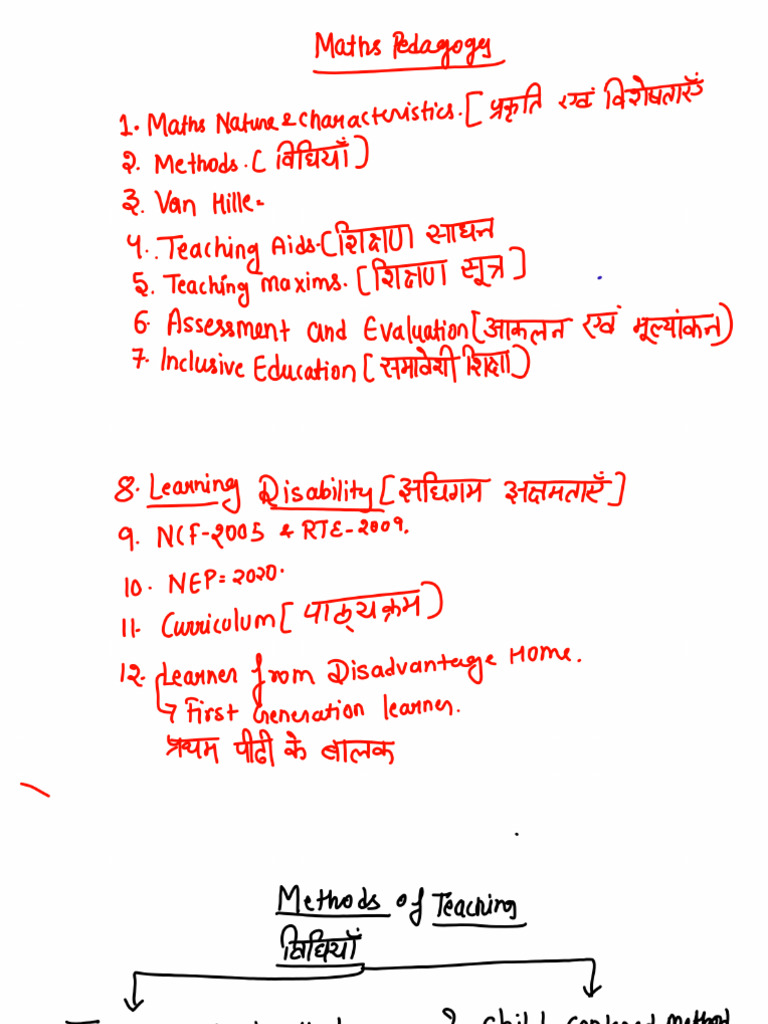 Maths Pedagogy
1. Maths Nature & Characteristics. [ प्रकृति एवं विशेषताएँ
2. Methods. ( विधियाँ )
3. Van Hille=
4. Teaching Aids.( शिक्षण साधन
5. Teaching Maxims. [ शिक्षण सूत्र ]
6. Assessment and Evaluation [ आकलन एवं मूल्यांकन )
7. Inclusive Education [ समावेशी शिक्षा )
8. Learning Disability [ अधिगम अक्षमताएँ ]
9. NCF-2005 & RTE-2009.
10. NEP=2020.
11. Curriculum [ पाठ्यक्रम )
12. Learner from Disadvantage Home.
→ First Generation learner.
प्रथम पीढी के बालक
Methods of Teaching
विधियाँ
2 Child centered Method